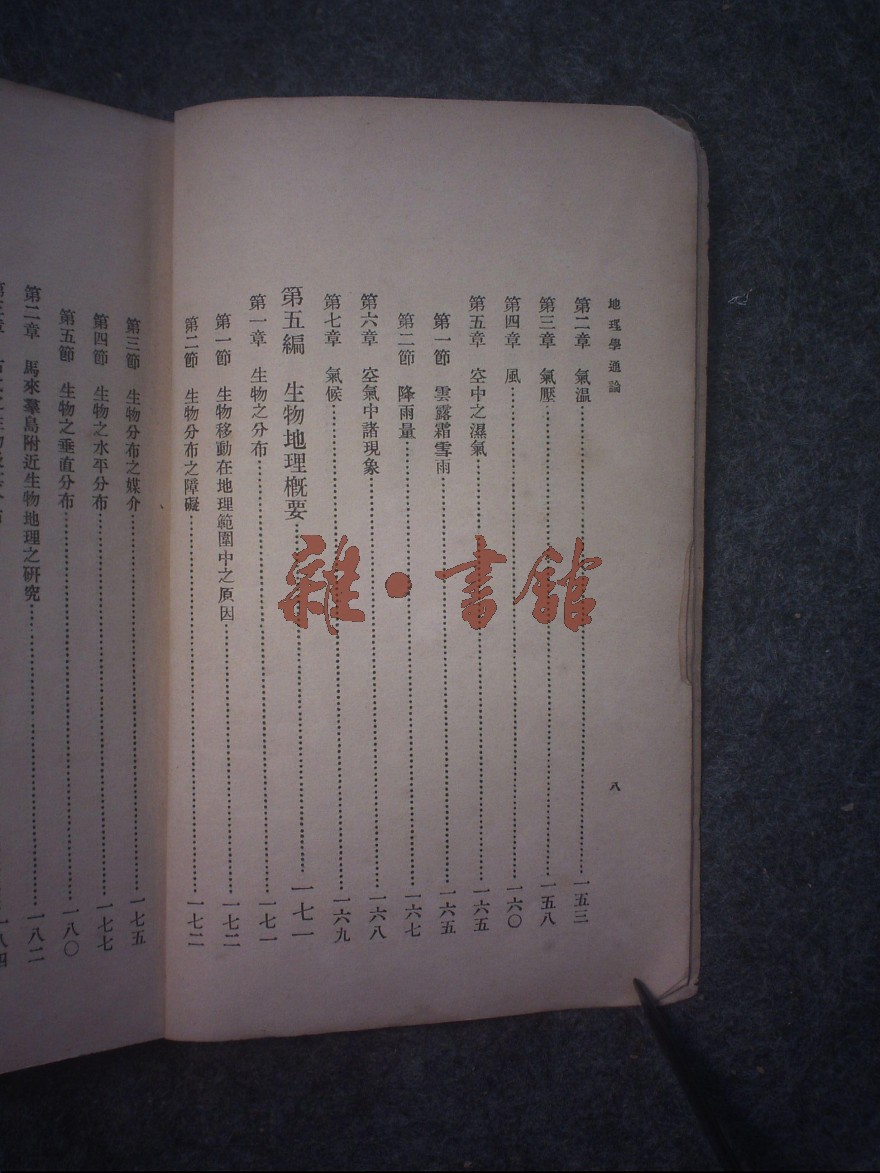 地理學通論
八
第二章 氣温……一五三
第三章 氣壓……一五八
第四章 風……一六〇
第五章 空中之濕氣……一六五
第一節 雲露霜雪雨……一六五
第二節 降雨量……一六七
第六章 空氣中諸現象……一六八
第七章 氣候……一六九
第五編 生物地理概要……一七一
第一章 生物之分布……一七一
第一節 生物移動在地理範圍中之原因……一七二
第二節 生物分布之障礙……一七二
第三節 生物分布之媒介……一七五
第四節 生物之水平分布……一七七
第五節 生物之垂直分布……一八〇
第二章 馬來羣島附近生物地理之研究……一八二
一八四
雜·書館